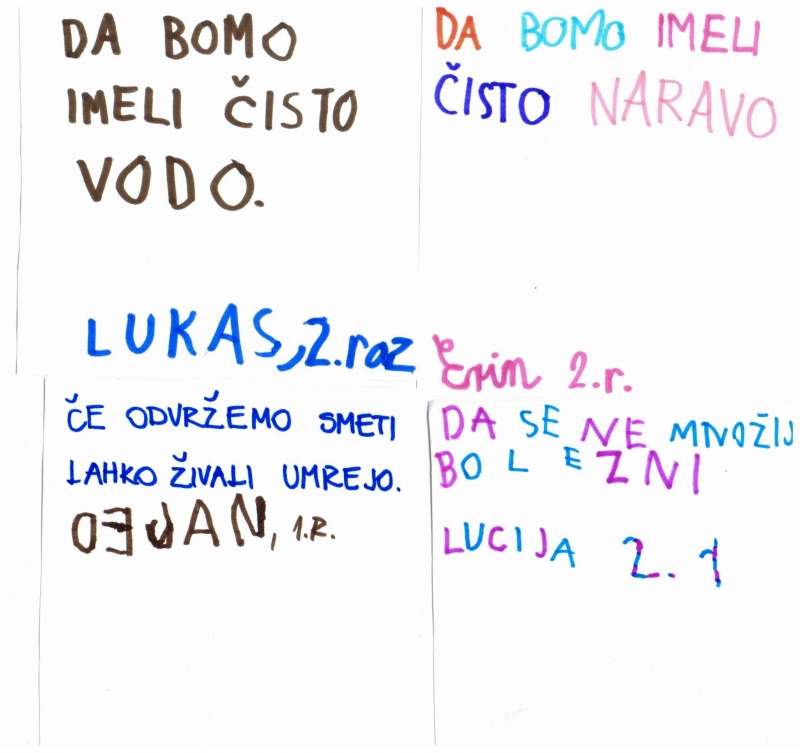 DA BOMO
IMELI ČISTO
VODO.
LUKAS, 2.raz
DA BOMO IMELI
ČISTO NARAVO
Erin 2.r.
ČE ODVRŽEMO SMETI
LAHKO ŽIVALI UMREJO.
DEJAN, 1.R.
DA SE NE MNOŽIJ
BOLEZNI
LUCIJA 2. 1